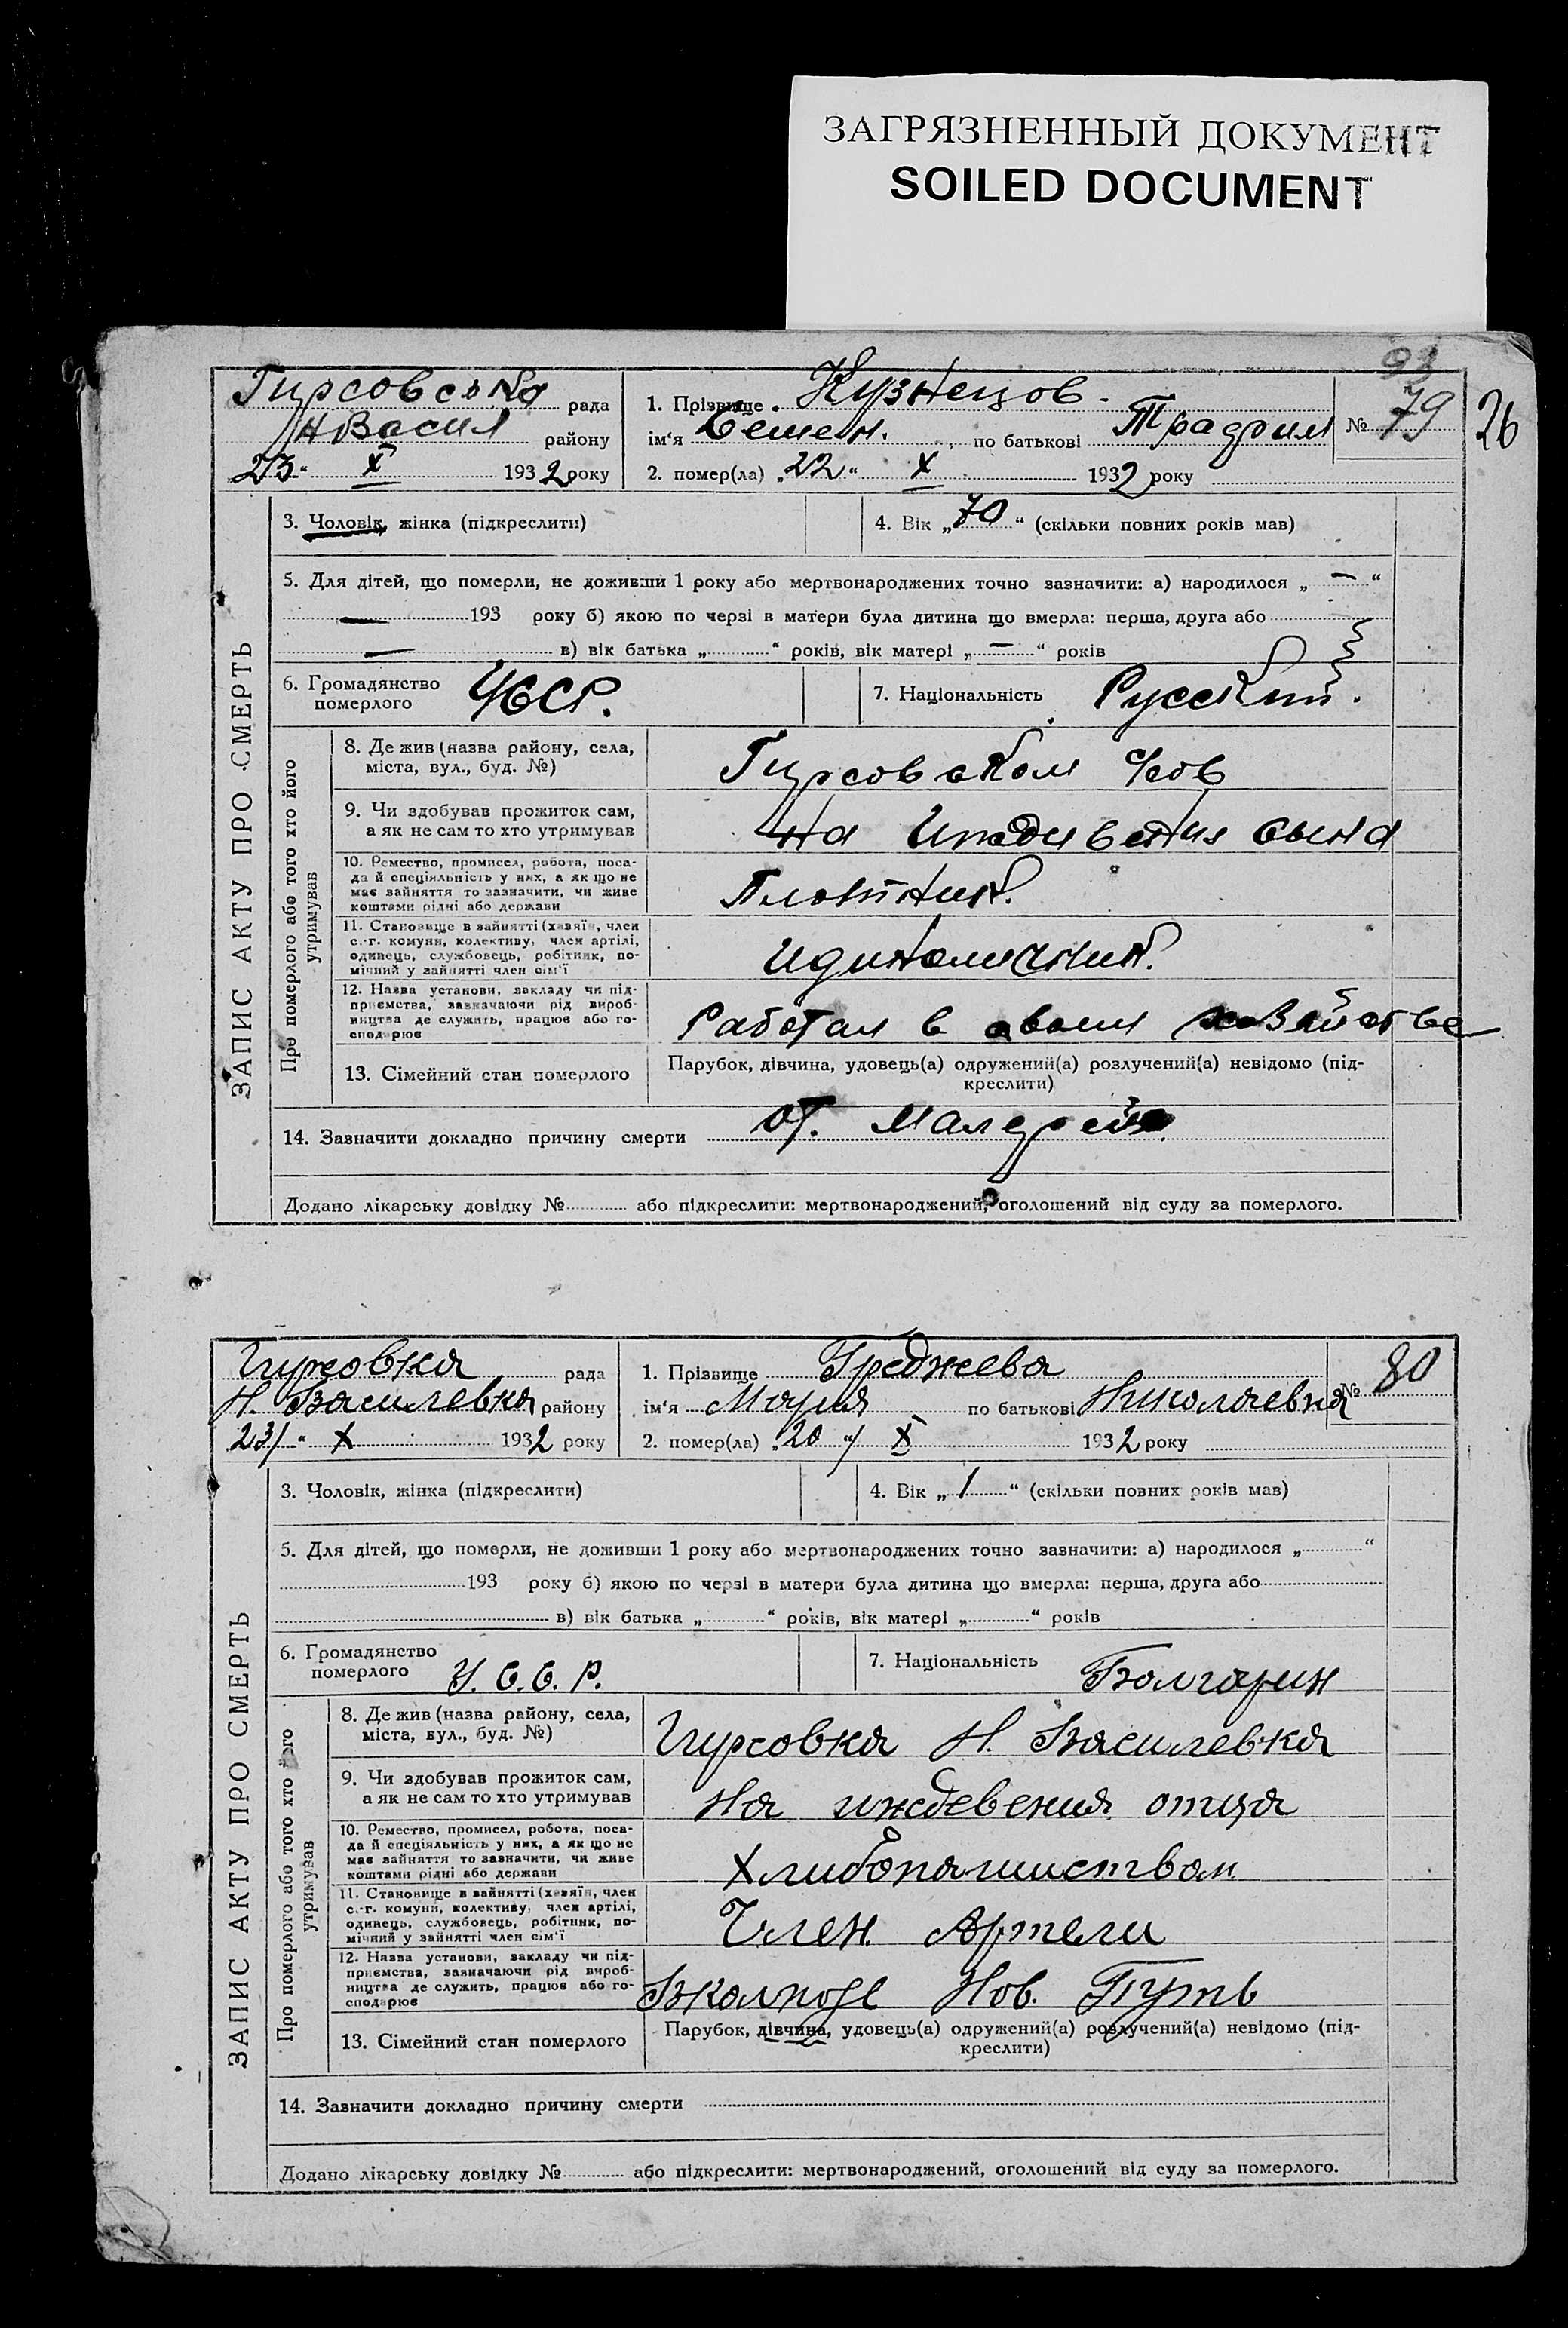 ЗАГРЯЗНЕННЫЙ ДОКУМЕНТ
SOILED DOCUMENT
93
Гирсовська рада
НВасил району
„23“ X 1932 року
1. Прізвище Кузнецов
ім‘я Семен, по батькові
2. помер(ла) „22“ X 1932 року
№ 79
26
ЗАПИС АКТУ ПРО СМЕРТЬ
3. Чоловік, жінка (підкреслити)
4. Вік „70“ (скільки повних років мав)
5. Для дітей, що померли, не доживши 1 року або мертвонароджених точно зазначити: а) народилося „ — “
— 193 року б) якою по черзі в матери була дитина що вмерла: перша, друга або
— в) вік батька „ “ років, вік матері „ — “ років
6. Громадянство
померлого УССР.
7. Національність Русский.
Про померлого або того хто його
утримував
8. Де жив (назва району, села,
міста, вул., буд. №)
Гирсовском
9. Чи здобував прожиток сам,
а як не сам то хто утримував
На Иждивения сына
10. Ремество, промисел, робота, поса-
да й спеціяльність у них, а як що не
має зайняття то зазначити, чи живе
коштами рідні або держави
Плотник.
11. Становище в зайнятті (хазяїн, член
с.-г. комуни, колективу, член артілі,
одинець, службовець, робітник, по-
мічний у зайнятті член сім‘ї
Идиноличник.
12. Назва установи, закладу чи під-
приємства, зазначаючи рід вироб-
ництва де служить, працює або го-
сподарює
Работал в своем хозяйстве
13. Сімейний стан померлого
Парубок, дівчина, удовець(а) одружений(а) розлучений(а) невідомо (під-
креслити)
14. Зазначити докладно причину смерти от.
Додано лікарську довідку № або підкреслити: мертвонароджений, оголошений від суду за померлого.
Гирсовка рада
Н. Василевка району
23 “ X 1932 року
1. Прізвище Греджева
ім‘я Мария по батькові Николаевна
2. помер(ла) „20“ X 1932 року
№ 80
ЗАПИС АКТУ ПРО СМЕРТЬ
3. Чоловік, жінка (підкреслити)
4. Вік „1“ (скільки повних років мав)
5. Для дітей, що померли, не доживши 1 року або мертвонароджених точно зазначити: а) народилося „ “
193 року б) якою по черзі в матери була дитина що вмерла: перша, друга або
в) вік батька „ “ років, вік матері „ “ років
6. Громадянство
померлого У. С. С. Р.
7. Національність Болгарин
Про померлого або того хто його
утримував
8. Де жив (назва району, села,
міста, вул., буд. №)
Гирсовка Н. Василевка
9. Чи здобував прожиток сам,
а як не сам то хто утримував
На иждевения отца
10. Ремество, промисел, робота, поса-
да й спеціяльність у них, а як що не
має зайняття то зазначити, чи живе
коштами рідні або держави
Хлибопашиством
11. Становище в зайнятті (хазяїн, член
с.-г. комуни, колективу, член артілі,
одинець, службовець, робітник, по-
мічний у зайнятті член сім‘ї
Член Артели
12. Назва установи, закладу чи під-
приємства, зазначаючи рід вироб-
ництва де служить, працює або го-
сподарює
Нов. Путь
13. Сімейний стан померлого
Парубок, дівчина, удовець(а) одружений(а) розлучений(а) невідомо (під-
креслити)
14. Зазначити докладно причину смерти
Додано лікарську довідку № або підкреслити: мертвонароджений, оголошений від суду за померлого.